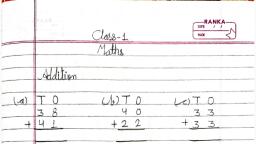 RANKA
DATE / /
PAGE
Class-1
Maths
Addition
(a) T O (b) T O (c) T O
3 8 4 0 3 3
+ 4 1 + 2 2 + 3 3